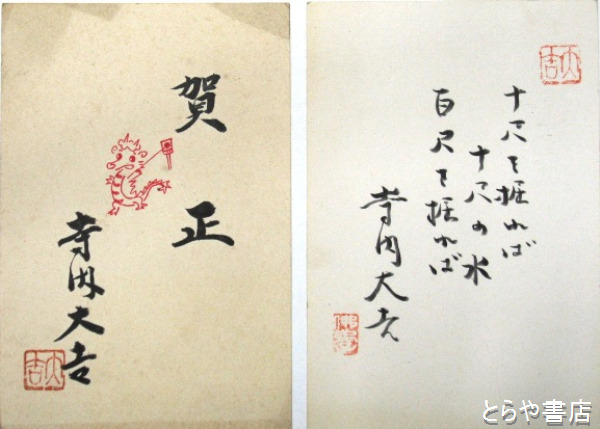 賀正
寺内大吉
大吉
十尺を掘れば
十尺の水
百尺を掘れば
寺内大吉
大吉
とらや書店